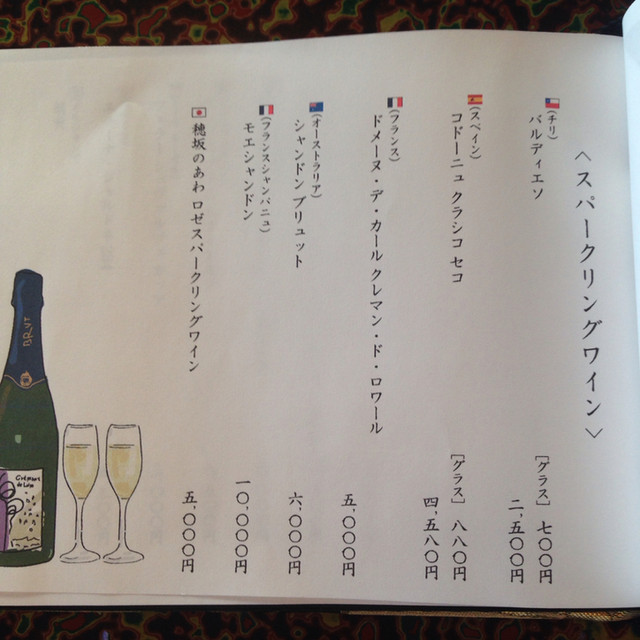 〈スパークリングワイン〉
(チリ)
バルディエソ
[グラス] 七〇〇円
二、五〇〇円
(スペイン)
コドーニュ クラシコ セコ
[グラス] 八八〇円
四、五八〇円
(フランス)
ドメーヌ・デ・カール クレマン・ド・ロワール
五、〇〇〇円
(オーストラリア)
シャンドン ブリュット
六、〇〇〇円
(フランスシャンパーニュ)
モエシャンドン
一〇、〇〇〇円
穂坂のあわ ロゼスパークリングワイン
五、〇〇〇円
BRUT